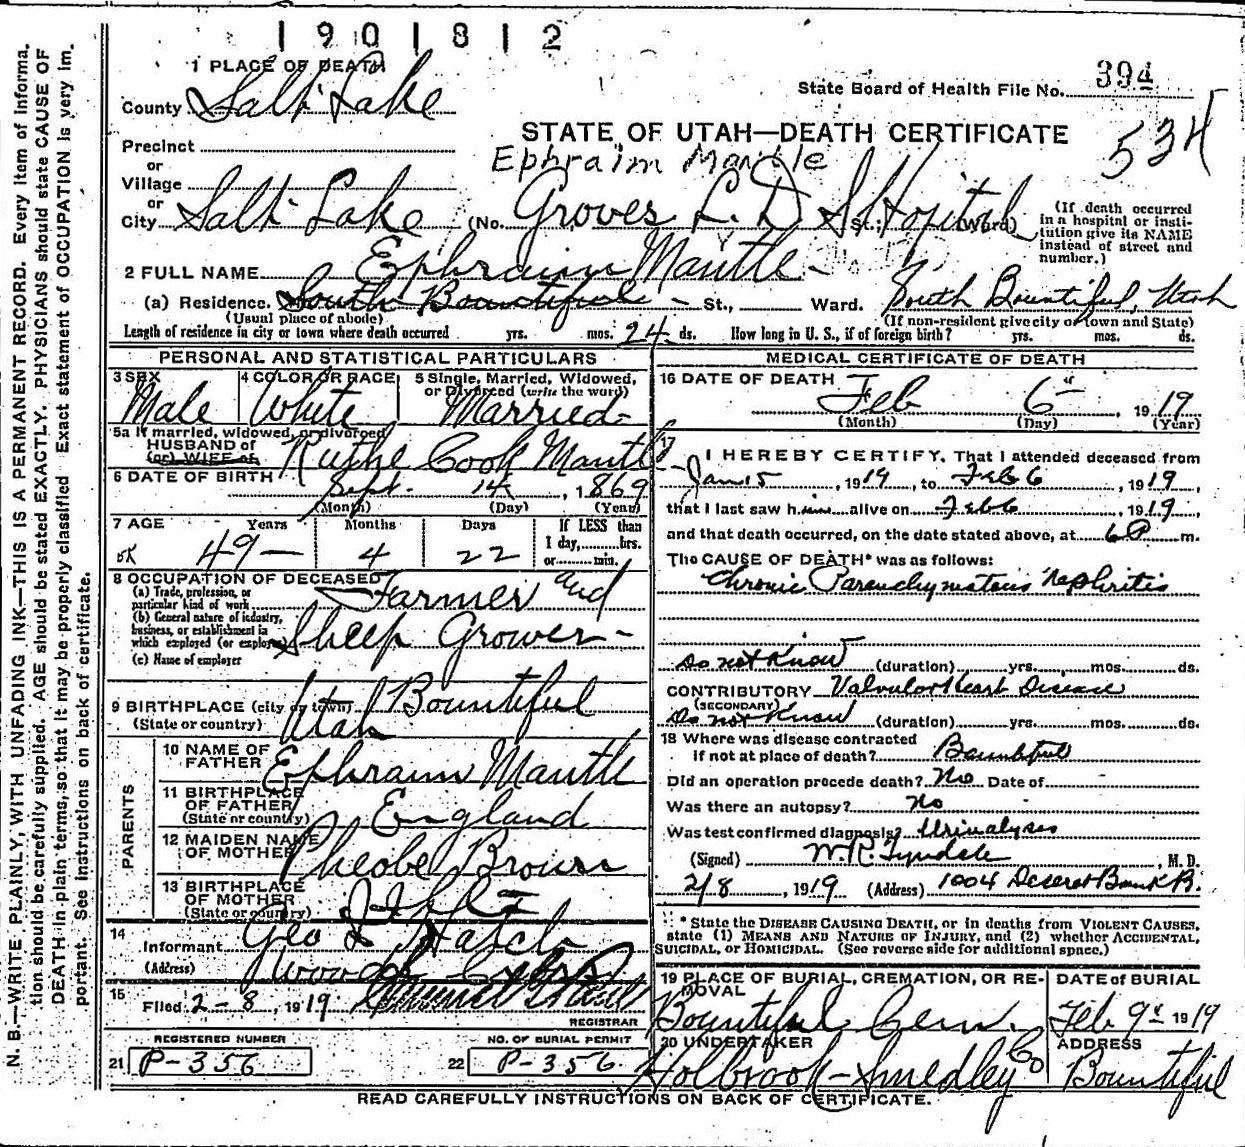 1901812
1 PLACE OF DEATH
State Board of Health File No. 394
County Salt Lake
534
STATE OF UTAH—DEATH CERTIFICATE
Precinct
Ephraim Mantle
or
Village
or
City Salt Lake (No. Groves L. D S Hospital St.; Ward)
(If death occurred in a hospital or institution give its NAME instead of street and number.)
2 FULL NAME Ephraim Mantle
(a) Residence. South Bountiful St., Ward. South Bountiful, Utah
(Usual place of abode) (If non-resident give city or town and State)
Length of residence in city or town where death occurred yrs. mos. 24 ds. How long in U. S., if of foreign birth? yrs. mos. ds.
PERSONAL AND STATISTICAL PARTICULARS
3 SEX Male
4 COLOR OR RACE White
5 Single, Married, Widowed, or Divorced (write the word) Married
5a If married, widowed, or divorced
HUSBAND of
(or) WIFE of Ruthe Cook Mantle
6 DATE OF BIRTH Sept. 14, 1869
(Month) (Day) (Year)
7 AGE Years Months Days If LESS than
1 day, hrs.
or min.
OK 49 4 22
8 OCCUPATION OF DECEASED
(a) Trade, profession, or
particular kind of work Farmer and
(b) General nature of industry,
business, or establishment in
which employed (or employer) Sheep Grower
(c) Name of employer
9 BIRTHPLACE (city or town) Bountiful
(State or country) Utah
PARENTS
10 NAME OF
FATHER Ephraim Mantle
11 BIRTHPLACE
OF FATHER
(State or country) England
12 MAIDEN NAME
OF MOTHER Pheobe Brown
13 BIRTHPLACE
OF MOTHER
(State or country)
14
Informant Geo
(Address) Woods Cross
15
Filed 2-8, 1919
REGISTRAR
REGISTERED NUMBER
21 P-356
NO. OF BURIAL PERMIT
22 P-356
MEDICAL CERTIFICATE OF DEATH
16 DATE OF DEATH Feb 6, 1919
(Month) (Day) (Year)
17
I HEREBY CERTIFY, That I attended deceased from
Jan 15, 1919, to Feb 6, 1919,
that I last saw him alive on Feb 6, 1919,
and that death occurred, on the date stated above, at 6 P m.
The CAUSE OF DEATH* was as follows:
Chronic Parenchymatous Nephritis
Do not Know (duration) yrs. mos. ds.
CONTRIBUTORY Valvular Heart Disease
(SECONDARY)
Do not Know (duration) yrs. mos. ds.
18 Where was disease contracted
if not at place of death? Bountiful
Did an operation precede death? No Date of
Was there an autopsy? No
Was test confirmed diagnosis? Urinalyses
(Signed) W. R. Tyndale, M. D.
2/8, 1919 (Address) 1004 Deseret Bank B.
* State the DISEASE CAUSING DEATH, or in deaths from VIOLENT CAUSES,
state (1) MEANS AND NATURE OF INJURY, and (2) whether ACCIDENTAL,
SUICIDAL, or HOMICIDAL. (See reverse side for additional space.)
19 PLACE OF BURIAL, CREMATION, OR RE-
MOVAL
Bountiful Cem.
DATE OF BURIAL
Feb 9 1919
20 UNDERTAKER
Holbrook-Smedley Co
ADDRESS
Bountiful
READ CAREFULLY INSTRUCTIONS ON BACK OF CERTIFICATE.
N. B.—WRITE PLAINLY, WITH UNFADING INK—THIS IS A PERMANENT RECORD. Every item of informa-
tion should be carefully supplied. AGE should be stated EXACTLY. PHYSICIANS should state CAUSE OF
DEATH in plain terms, so that it may be properly classified. Exact statement of OCCUPATION is very im-
portant. See instructions on back of certificate.